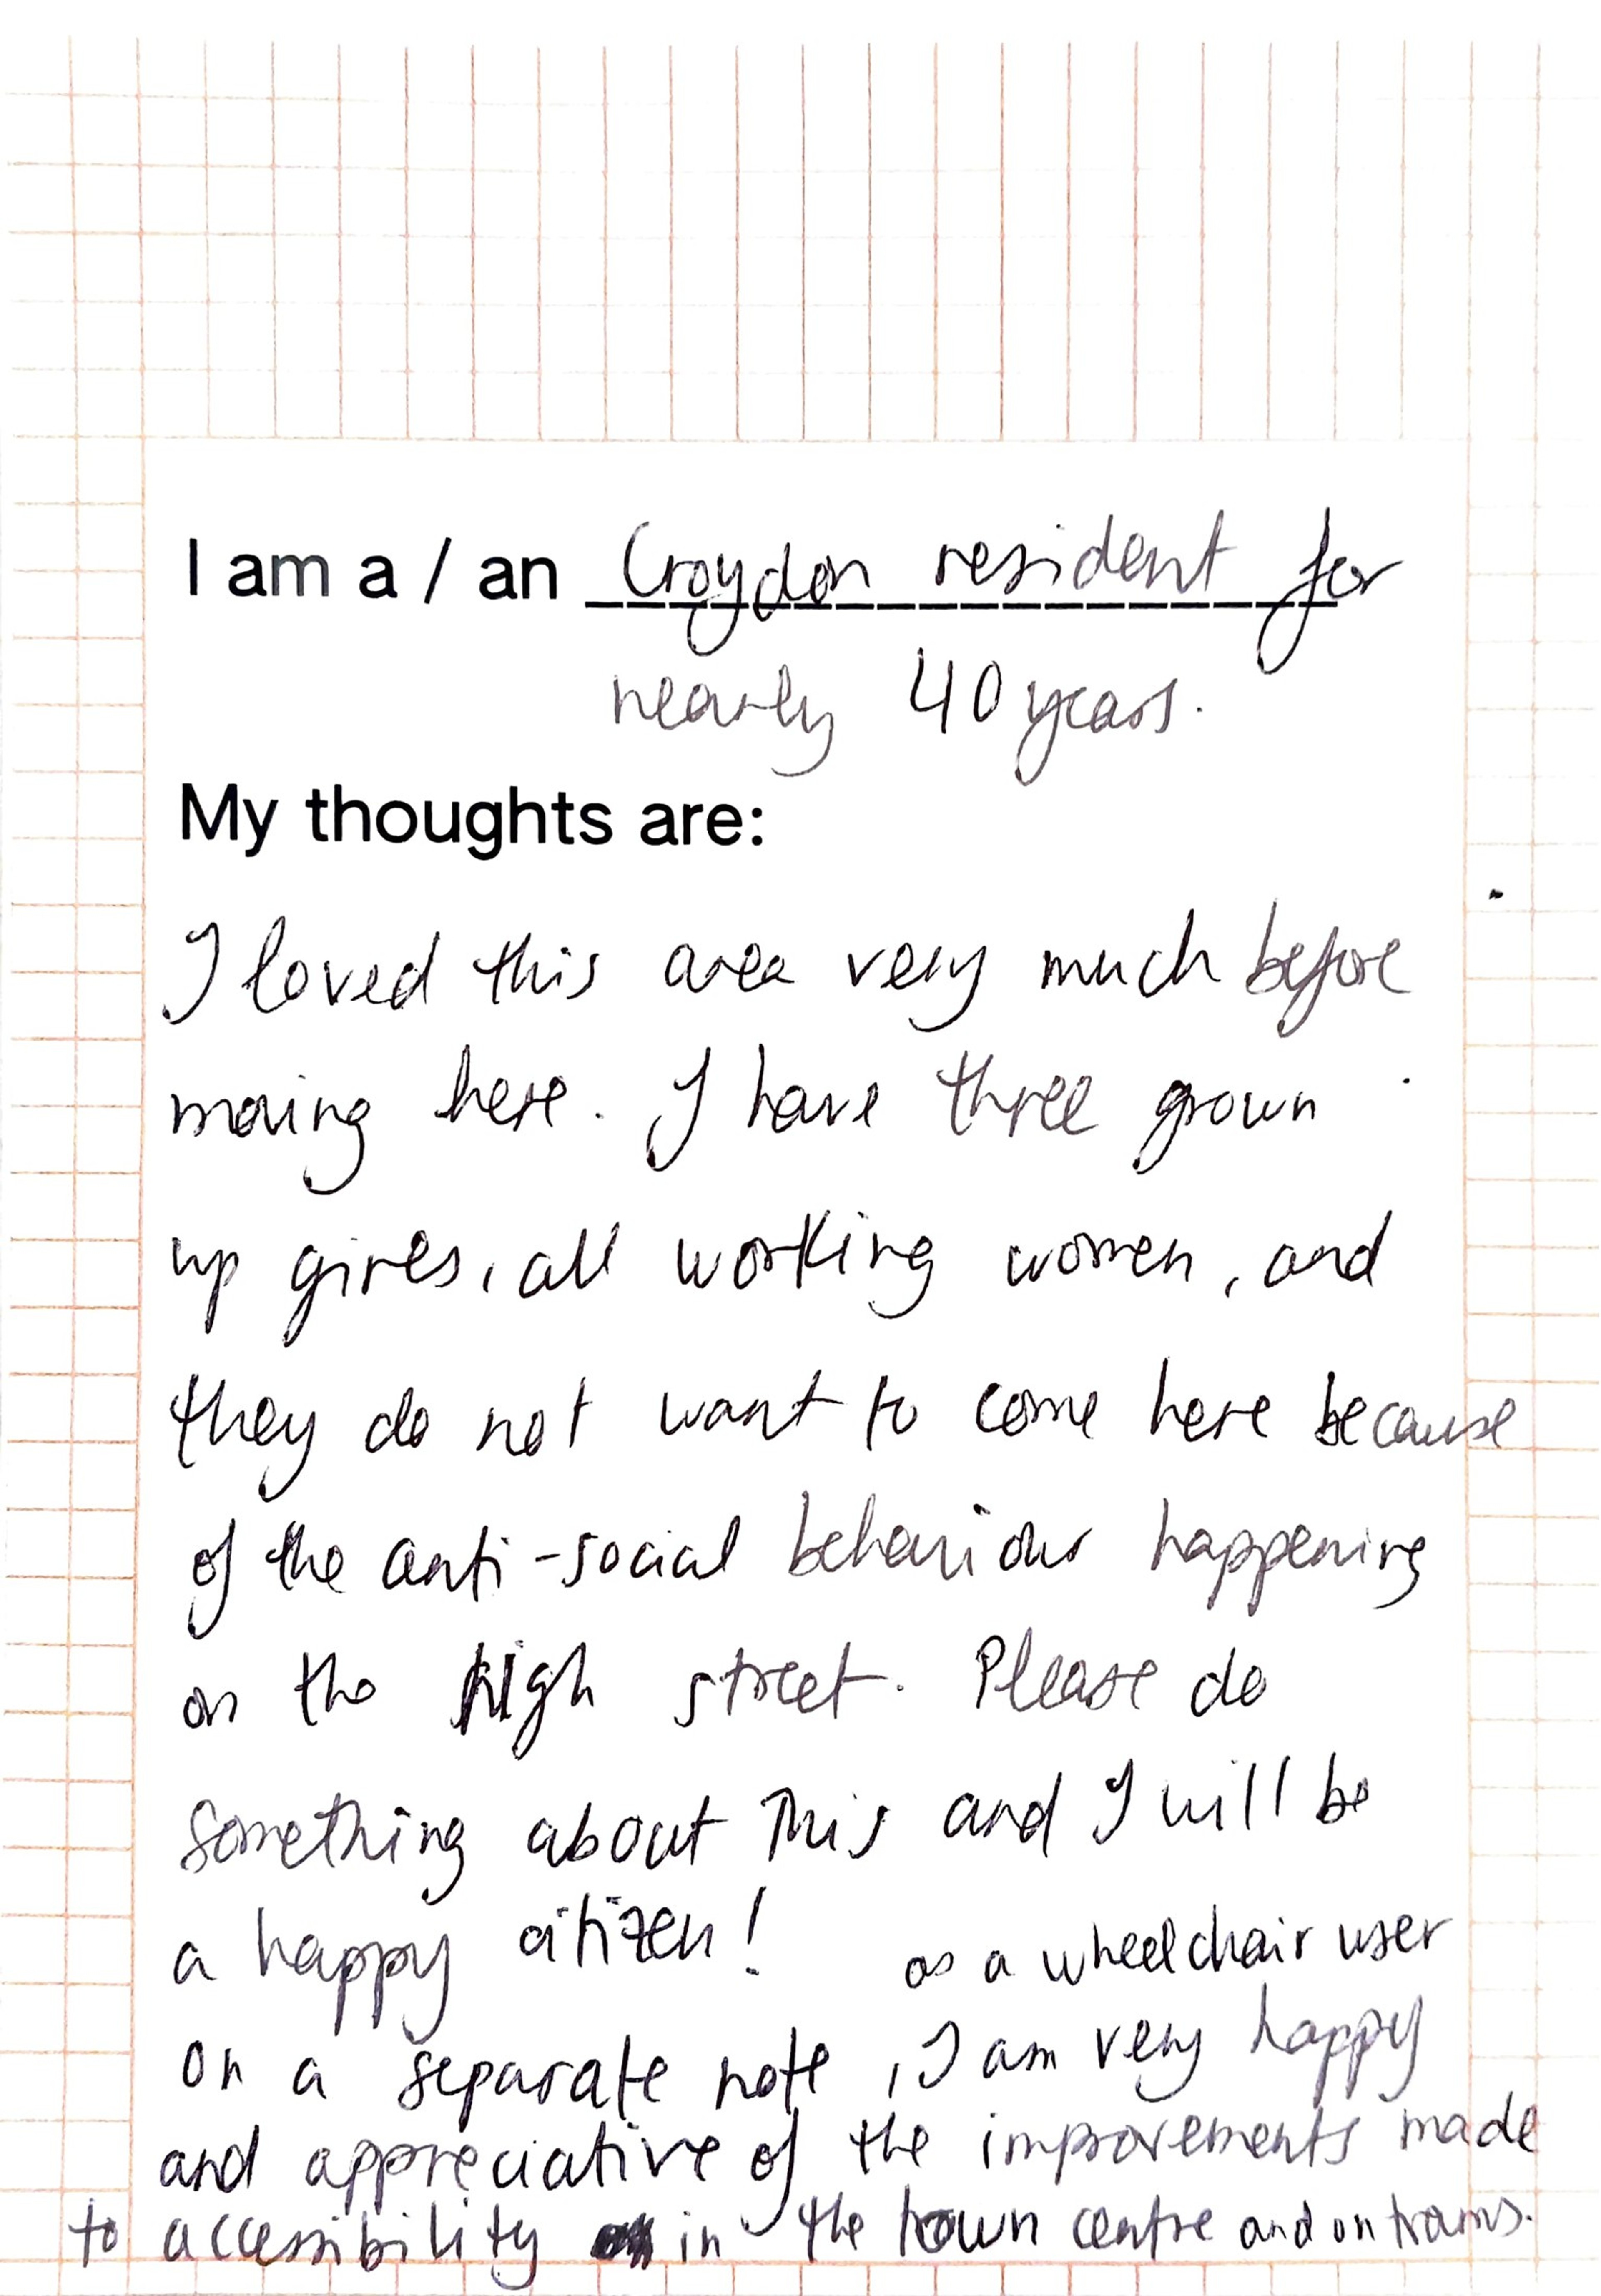 I am a / an Croydon resident for
nearly 40 years.
My thoughts are:
I loved this area very much before
moving here. I have three grown
up girls, all working women, and
they do not want to come here because
of the anti-social behaviour happening
on the high street. Please do
something about this and I will be
a happy citizen!
as a wheelchair user
On a separate note, I am very happy
and appreciative of the improvements made
to accessibility in the town centre and on trams.